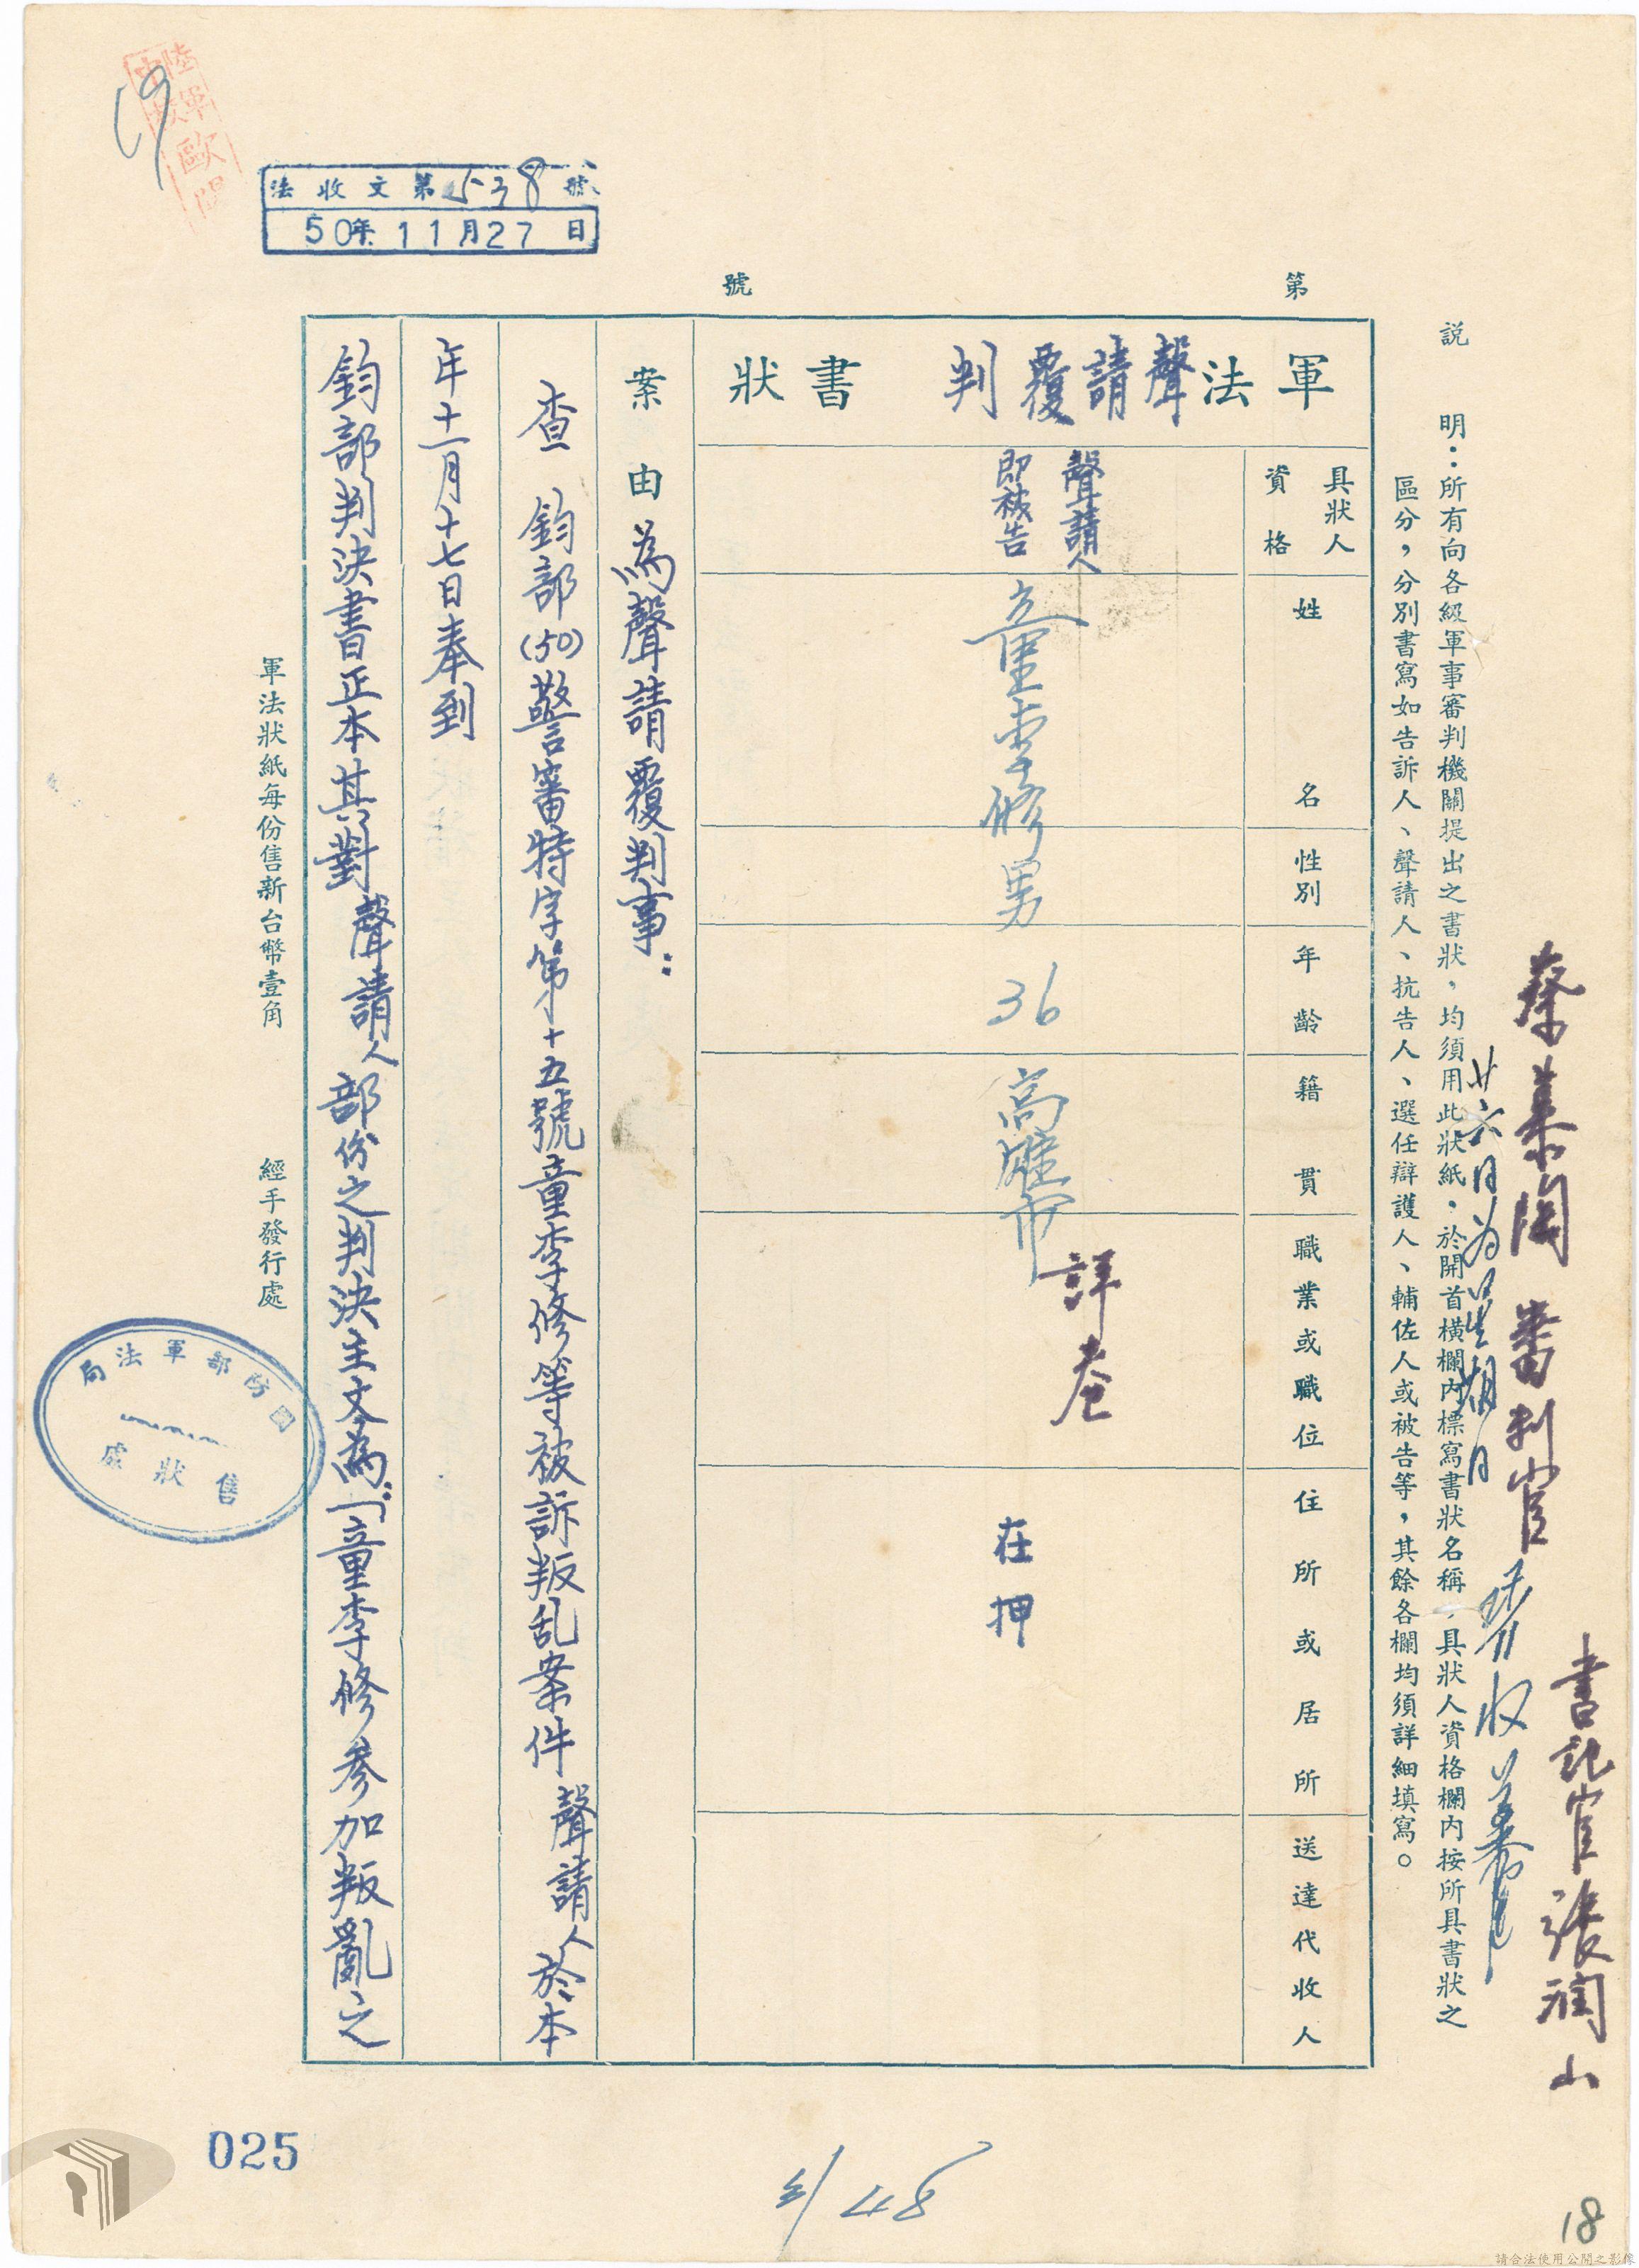 書記官張潤山
蔡慕陶 審判官
廿六日為星期日
收
說　明：所有向各級軍事審判機關提出之書狀，均須用此狀紙。於開首橫欄內標寫書狀名稱，具狀人資格欄內按所具書狀之
區分，分別書寫如告訴人、聲請人、抗告人、選任辯護人、輔佐人或被告等，其餘各欄均須詳細填寫。
第　號
軍法聲請覆判書狀
具狀人資格
聲請人
即被告
姓名
童李修
性別
男
年齡
36
籍貫
高雄市
職業或職位
詳卷
住所或居所
在押
送達代收人
案由 為聲請覆判事：
查　鈞部(50)警審特字第十五號童李修等被訴叛乱案件 聲請人於本
年十一月十七日奉到
鈞部判決書正本其對 聲請人 部份之判決主文為：「童李修參加叛亂之
軍法狀紙每份售新台幣壹角　經手發行處
國防部軍法局
售狀處
法收文第538號
50年11月27日
陸軍中校歐陽
19
025
18
請合法使用公開之影像